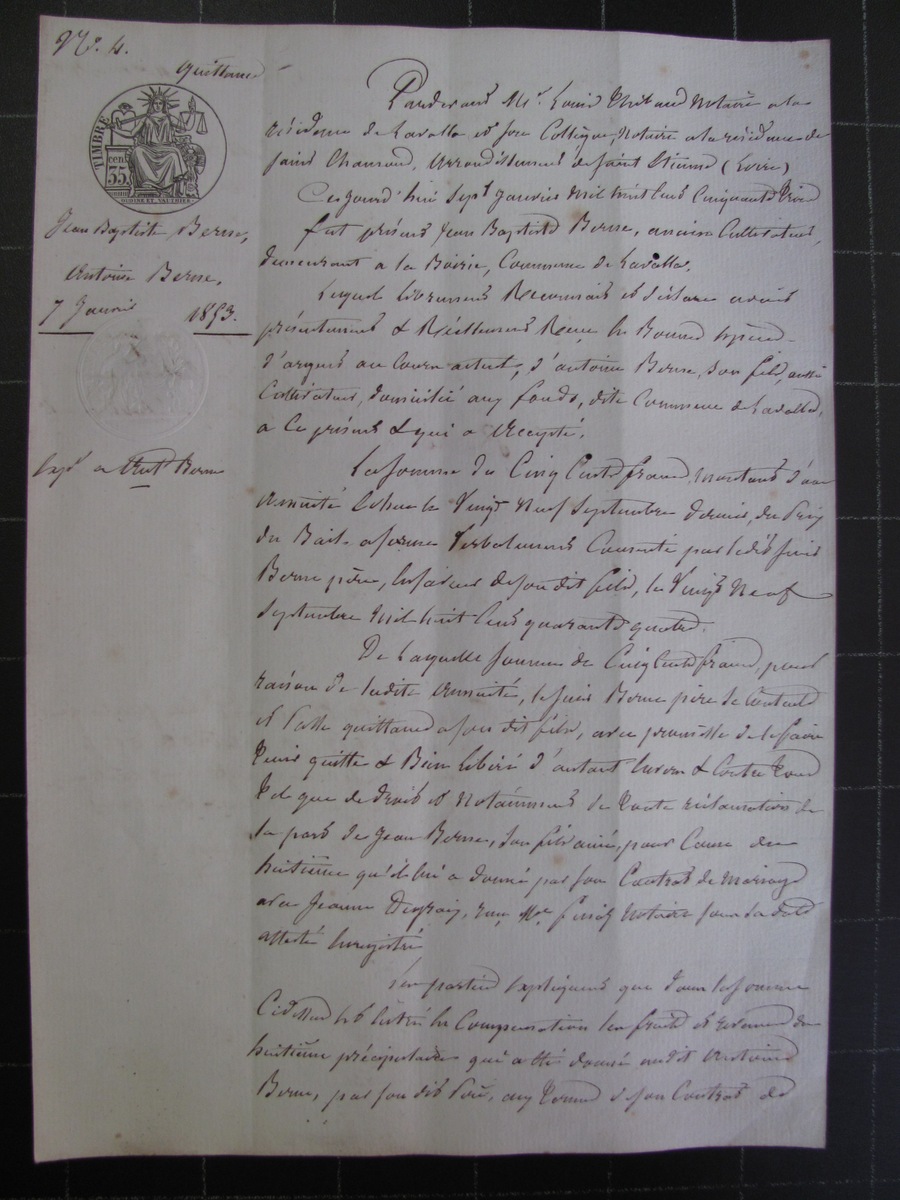 N°. 4.
Quittance
TIMBRE
35 cent
OUDINE ET VAUTHIER
Jean Baptiste Berne,
Antoine Berne,
7 Janvier 1853.
Exp. a Ant. Berne
Pardevant Me. Louis Thibaud Notaire a la
résidence de Lavalla et son Collègue, Notaire a la résidence de
Saint Chamond, Arrondissement de Saint Etienne (Loire)
Cejourd'hui Sept Janvier Mil huit Cent Cinquante Trois
fut présent Jean Baptiste Berne, ancien Cultivateur,
demeurant a la Boirie, Commune de Lavalla,
Lequel librement Reconnait et déclare avoir
présentement & Réellement Reçu en Bonnes espèces
d'argent au Cours actuel, d'antoine Berne, son fils, aussi
Cultivateur, domicilié aux fonds, dite Commune de Lavalla,
a ce présent & qui a accepté.
La Somme de Cinq Cents francs, montant d'une
annuité échue le Vingt Neuf Septembre dernier, du Prix
du Bail a ferme Verbalement Consenti par ledit Sieur
Berne père, en faveur de son dit fils, le Vingt Neuf
Septembre Mil huit Cent quarante quatre.
De laquelle Somme de Cinq Cents francs, pour
raison de ladite annuité, le Sieur Berne père se Contente
et Passe quittance a son dit fils, avec promesse de le faire
Tenir quitte & Bien libéré d'autant envers & Contre Tous
que de droit et Notamment de Toute réclamation de
la part de Jean Berne, son fils aîné, pour Cause du
huitième qu'il lui a donné par son Contrat de Mariage
avec Jeanne reçu Me Notaire sous sa date
attesté Enregistré
Les parties expliquent que dans la somme
Cidessus est entré en Compensation les fruits et revenus du
huitième préciputaire qui a été donné audit Antoine
Berne, par son dit Père, aux Termes de son Contrat de